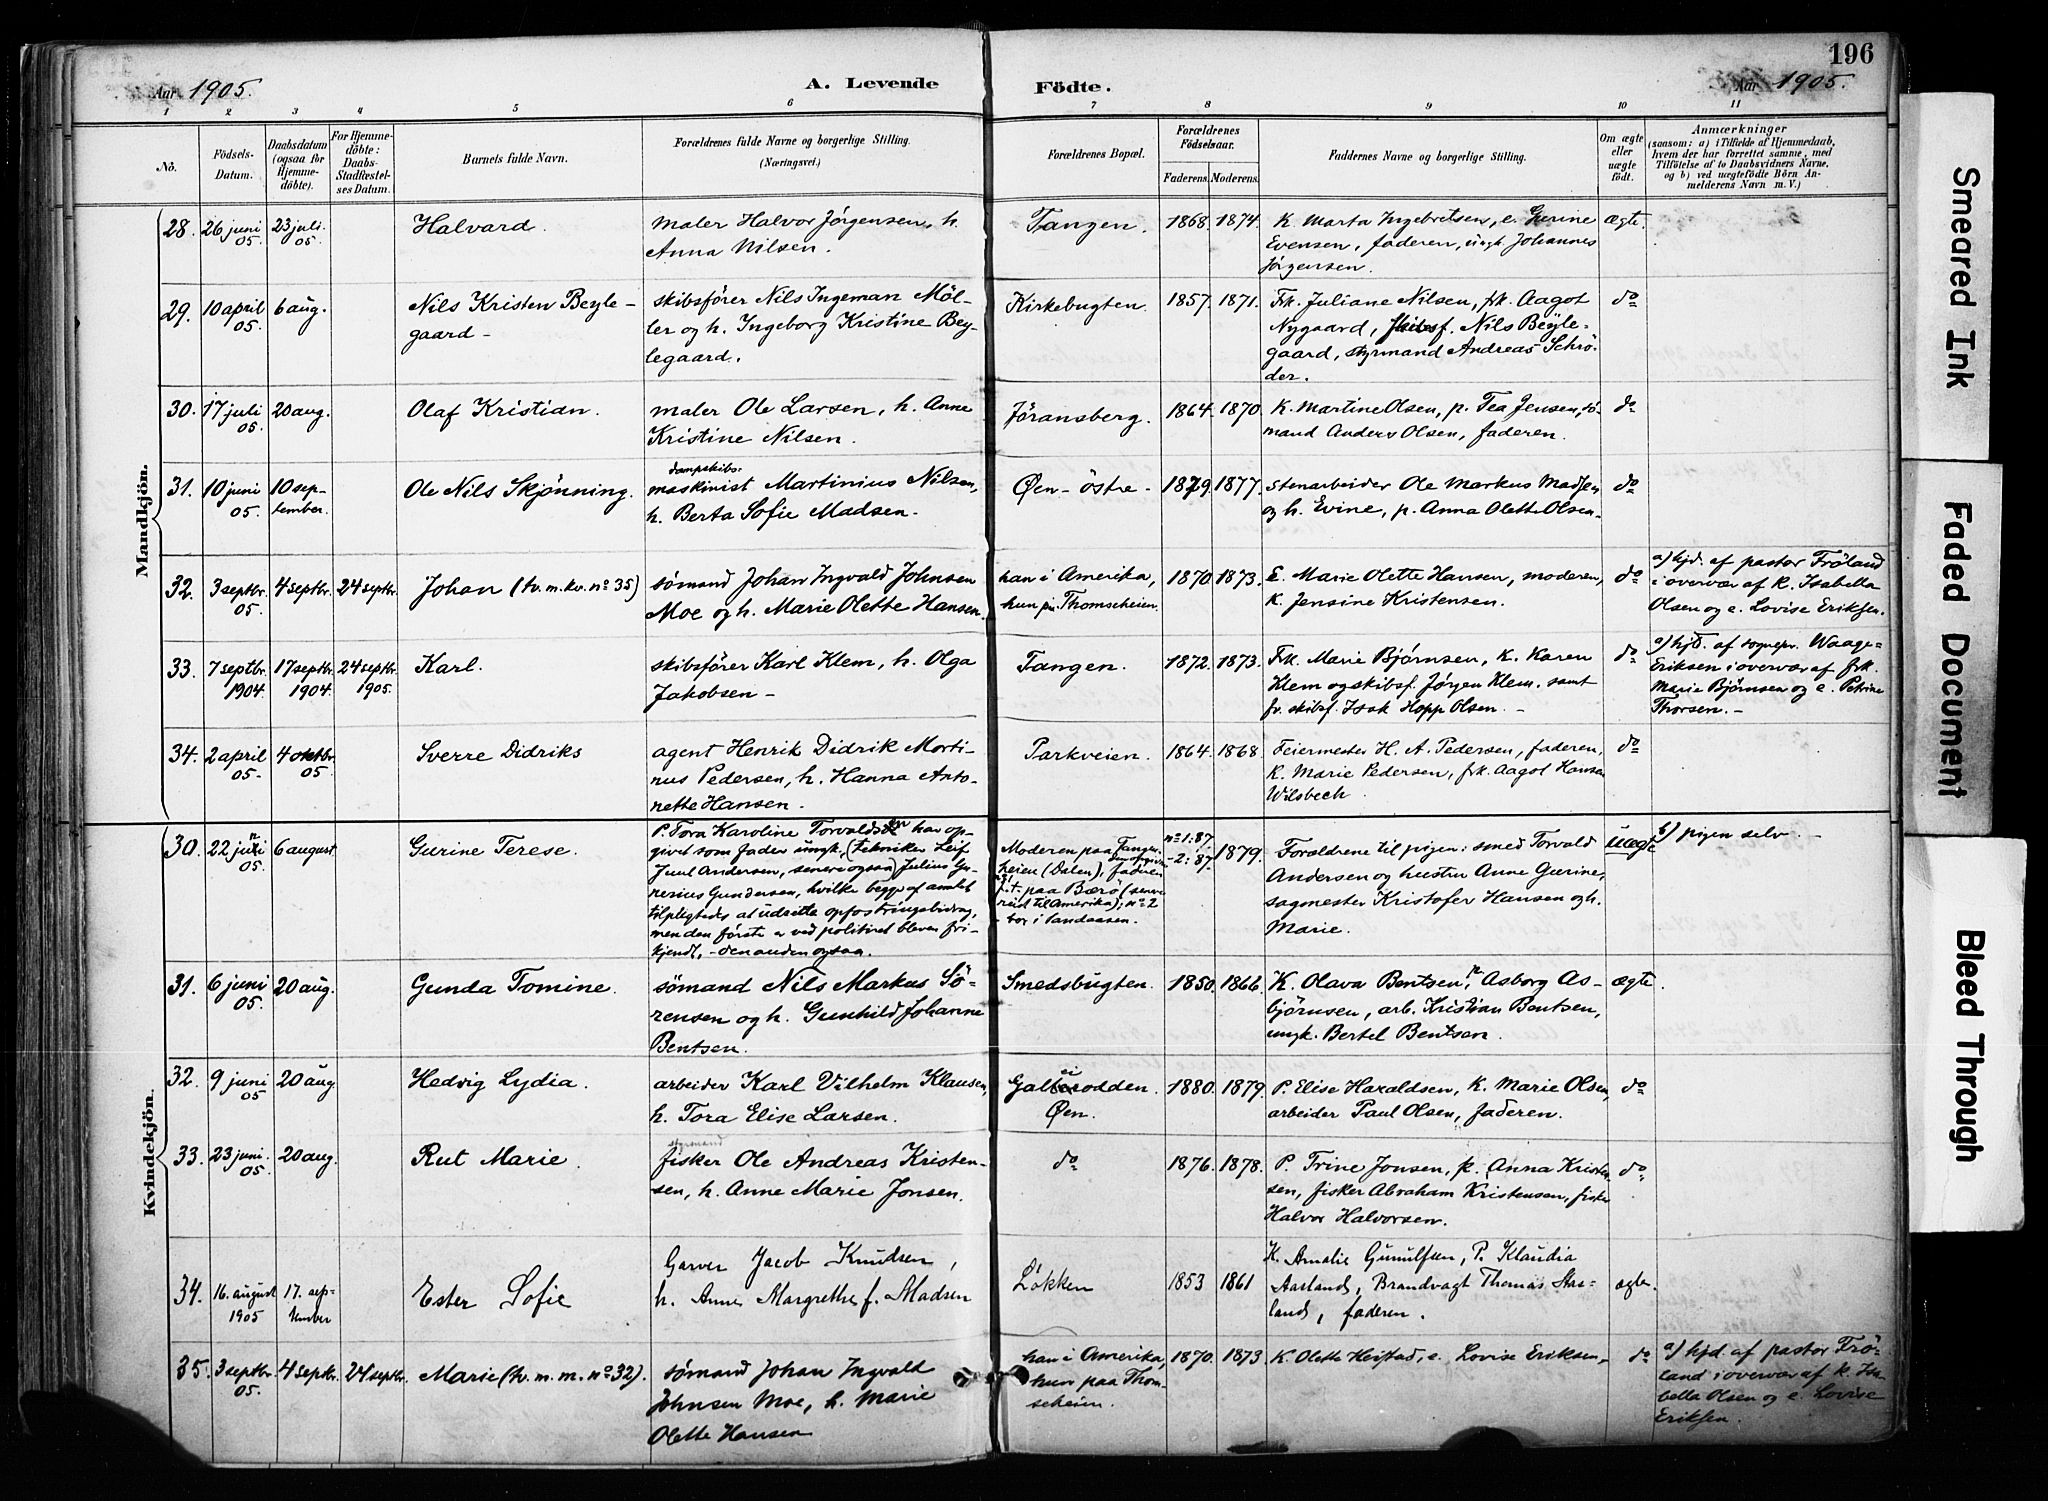 196
Aar 1905.
A. Levende
Födte.
Aar 1905.
1 2 3 4 5 6 7 8 9 10 11
No.
Födsels-
Datum.
Daabsdatum
(ogsaa for
Hjemme-
döbte).
For Hjemme-
döbte:
Daabs-
Stadfæstel-
ses Datum.
Barnets fulde Navn.
Forældrenes fulde Navne og borgerlige Stilling.
(Næringsvei.)
Forældrenes Bopæl.
Forældrenes
Födselsaar.
Faderens. Moderens.
Faddernes Navne og borgerlige Stilling.
Om ægte
eller
uægte
födt.
Anmærkninger
(saasom: a) i Tilfælde af Hjemmedaab,
hvem der har forrettet samme, med
Tilföielse af to Daabsvidners Navne,
og b) ved uægtefödte Börn An-
melderens Navn m. V.)
Mandkjön.
28. 26 juni 05 23 juli 05. Halvard. maler Halvor Jørgensen, h.
Anna Nilsen.
Tangen. 1868. 1874. K. Marta Ingebretsen, e. Gurine
Evensen, faderen, ungk. Johannes
Jørgensen.
ægte.
29. 10 april 05. 6 aug. Nils Kristen Beyle-
gaard -
skibsfører Nils Ingeman Möl-
ler og h. Ingeborg Kristine Bey-
legaard.
Kirkebugten. 1857. 1871. Frk. Juliane Nilsen, frk. Aagot
Nygaard, skibsf. Nils Beyle-
gaard, styrmand Andreas Schrø-
der.
do
30. 17 juli 05. 20 aug. Olaf Kristian. maler Ole Larsen, h. Anne
Kristine Nilsen.
Jöransberg. 1864. 1870. K. Martine Olsen, p. Tea Jensen, sø-
mand Anders Olsen, faderen.
do
31. 10 juni 05. 10 sep-
tember. Ole Nils Skjønning. dampskibs-
maskinist Martinius Nilsen,
h. Berta Sofie Madsen.
Øen - östre - 1879. 1877. stenarbeider Ole Markus Madsen
og h. Evine, p. Anna Olette Olsen.
do
32. 3 septbr. 05 4 septbr. 24 septbr. Johan (tv. m. kv. no 35) sømand Johan Ingvald Johnsen
Moe og h. Marie Olette Hansen.
han i Amerika,
hun på Thomseheien. 1870. 1873. E. Marie Olette Hansen, moderen,
K. Jensine Kristensen.
do a) hjd. af pastor Frøland
i overvær af K. Isabella
Olsen og e. Lovise Eriksen.
33. 7 septbr. 1904. 17 septbr. 1904. 24 septbr. 1905. Karl. skibsfører Karl Klem, h. Olga
Jakobsen -
Tangen. 1872. 1873. Frk. Marie Bjørnsen, K. Karen
Klem og skibsf. Jørgen Klem. samt
fv. skibsf. Isak Hopp Olsen. -
do a) hjd. af sognepr. Waage-
Eriksen i overvær af frk.
Marie Bjørnsen og e. Petrine
Thorsen. -
34. 2 april 05. 4 oktbr. 05 Sverre Didriks agent Henrik Didrik Morti-
nus Pedersen, h. Hanna Anto-
nette Hansen.
Parkveien. 1864. 1868 Feiermester H. A. Pedersen, faderen,
K. Marie Pedersen, frk. Aagot Hansen
Wilsbech.
do
Kvindekjön.
30. 22 juni 05. 6 august Gurine Terese. P. Tora Karoline Torvaldsen har op-
givet som fader ungk. (tekniker Leif
Juul Andersen, senere ogsaa) Julius Gu-
nerius Gundersen, hvilke begge af amtet
tilpligtedes at udrette opfostringsbidrag,
men den første er ved politiret bleven fri-
kjendt, - den anden ogsaa.
Moderen paa Tangen-
heien (Dalen),
paa Bærø
til Amerika); no 2
bor i Sandaasen.
no 1: 87.
- 2: 87. 1879. Forældrene til pigen: smed Torvald
Andersen og hustru Anne Gurine,
sagmester Kristofer Hansen og h.
Marie.
uægte b) pigen selv. -
31. 6 juni 05. 20 aug. Gunda Tomine. sømand Nils Markus Sö-
rensen og h. Gunhild Johanne
Bentsen.
Smedsbugten. 1850. 1866. K. Olava Bentsen, p. Asborg As-
bjørnsen, arb. Kristian Bentsen,
ungk. Bertel Bentsen.
ægte.
32. 9 juni 05 20 aug Hedvig Lydia. arbeider Karl Vilhelm Klausen,
h. Tora Elise Larsen.
odden.
Øen. 1880. 1879. P. Elise Haraldsen, K. Marie Olsen,
arbeider Paul Olsen, faderen.
do
33. 23 juni 05. 20 aug. Rut Marie. styrmand
fisker Ole Andreas Kristen-
sen, h. Anne Marie Jonsen.
do 1876. 1878. P. Trine Jonsen, p. Anna Kristen-
sen, fisker Abraham Kristensen, fisker
Halvor Halvorsen.
do
34. 16. august 1905 17. sep-
tember Ester Sofie Garver Jacob Knudsen,
h. Anne Margrethe f. Madsen
Løkken 1853 1861 K. Amalie Gunulfsen, P. Klaudia
Aasland, Brandvagt Thomas Aas-
land, faderen.
ægte.
35. 3 septbr. 05. 4 septbr. 24 septbr. Marie (tv. m. m. no 32). sømand Johan Ingvald
Johnsen Moe, h. Marie
Olette Hansen
han i Amerika,
hun paa Thom-
seheien. 1870. 1873 K. Olette Heistad, e. Lovise Eriksen, do a) hjd. af pastor Frö-
land i overvær af K. Isa-
bella Olsen og e. Lovise
Eriksen.
Smeared Ink
Faded Document
Bleed Through